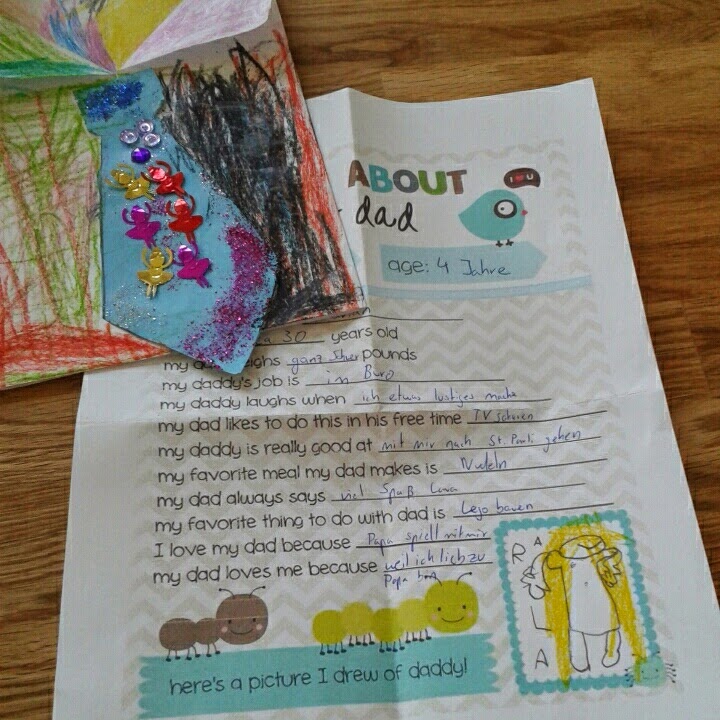 ABOUT
I ♥ U
dad
age: 4 Jahre
30 years old
my ghs ganz pounds
my daddy's job is im Büro
my daddy laughs when ich etwas lustiges mache
my dad likes to do this in his free time TV schauen
my daddy is really good at mit mir nach St. Pauli gehen
my favorite meal my dad makes is Nudeln
my dad always says viel Spaß
my favorite thing to do with dad is Lego bauen
I love my dad because Papa spielt mit mir
my dad loves me because weil ich lieb zu
Papa bin
here's a picture I drew of daddy!